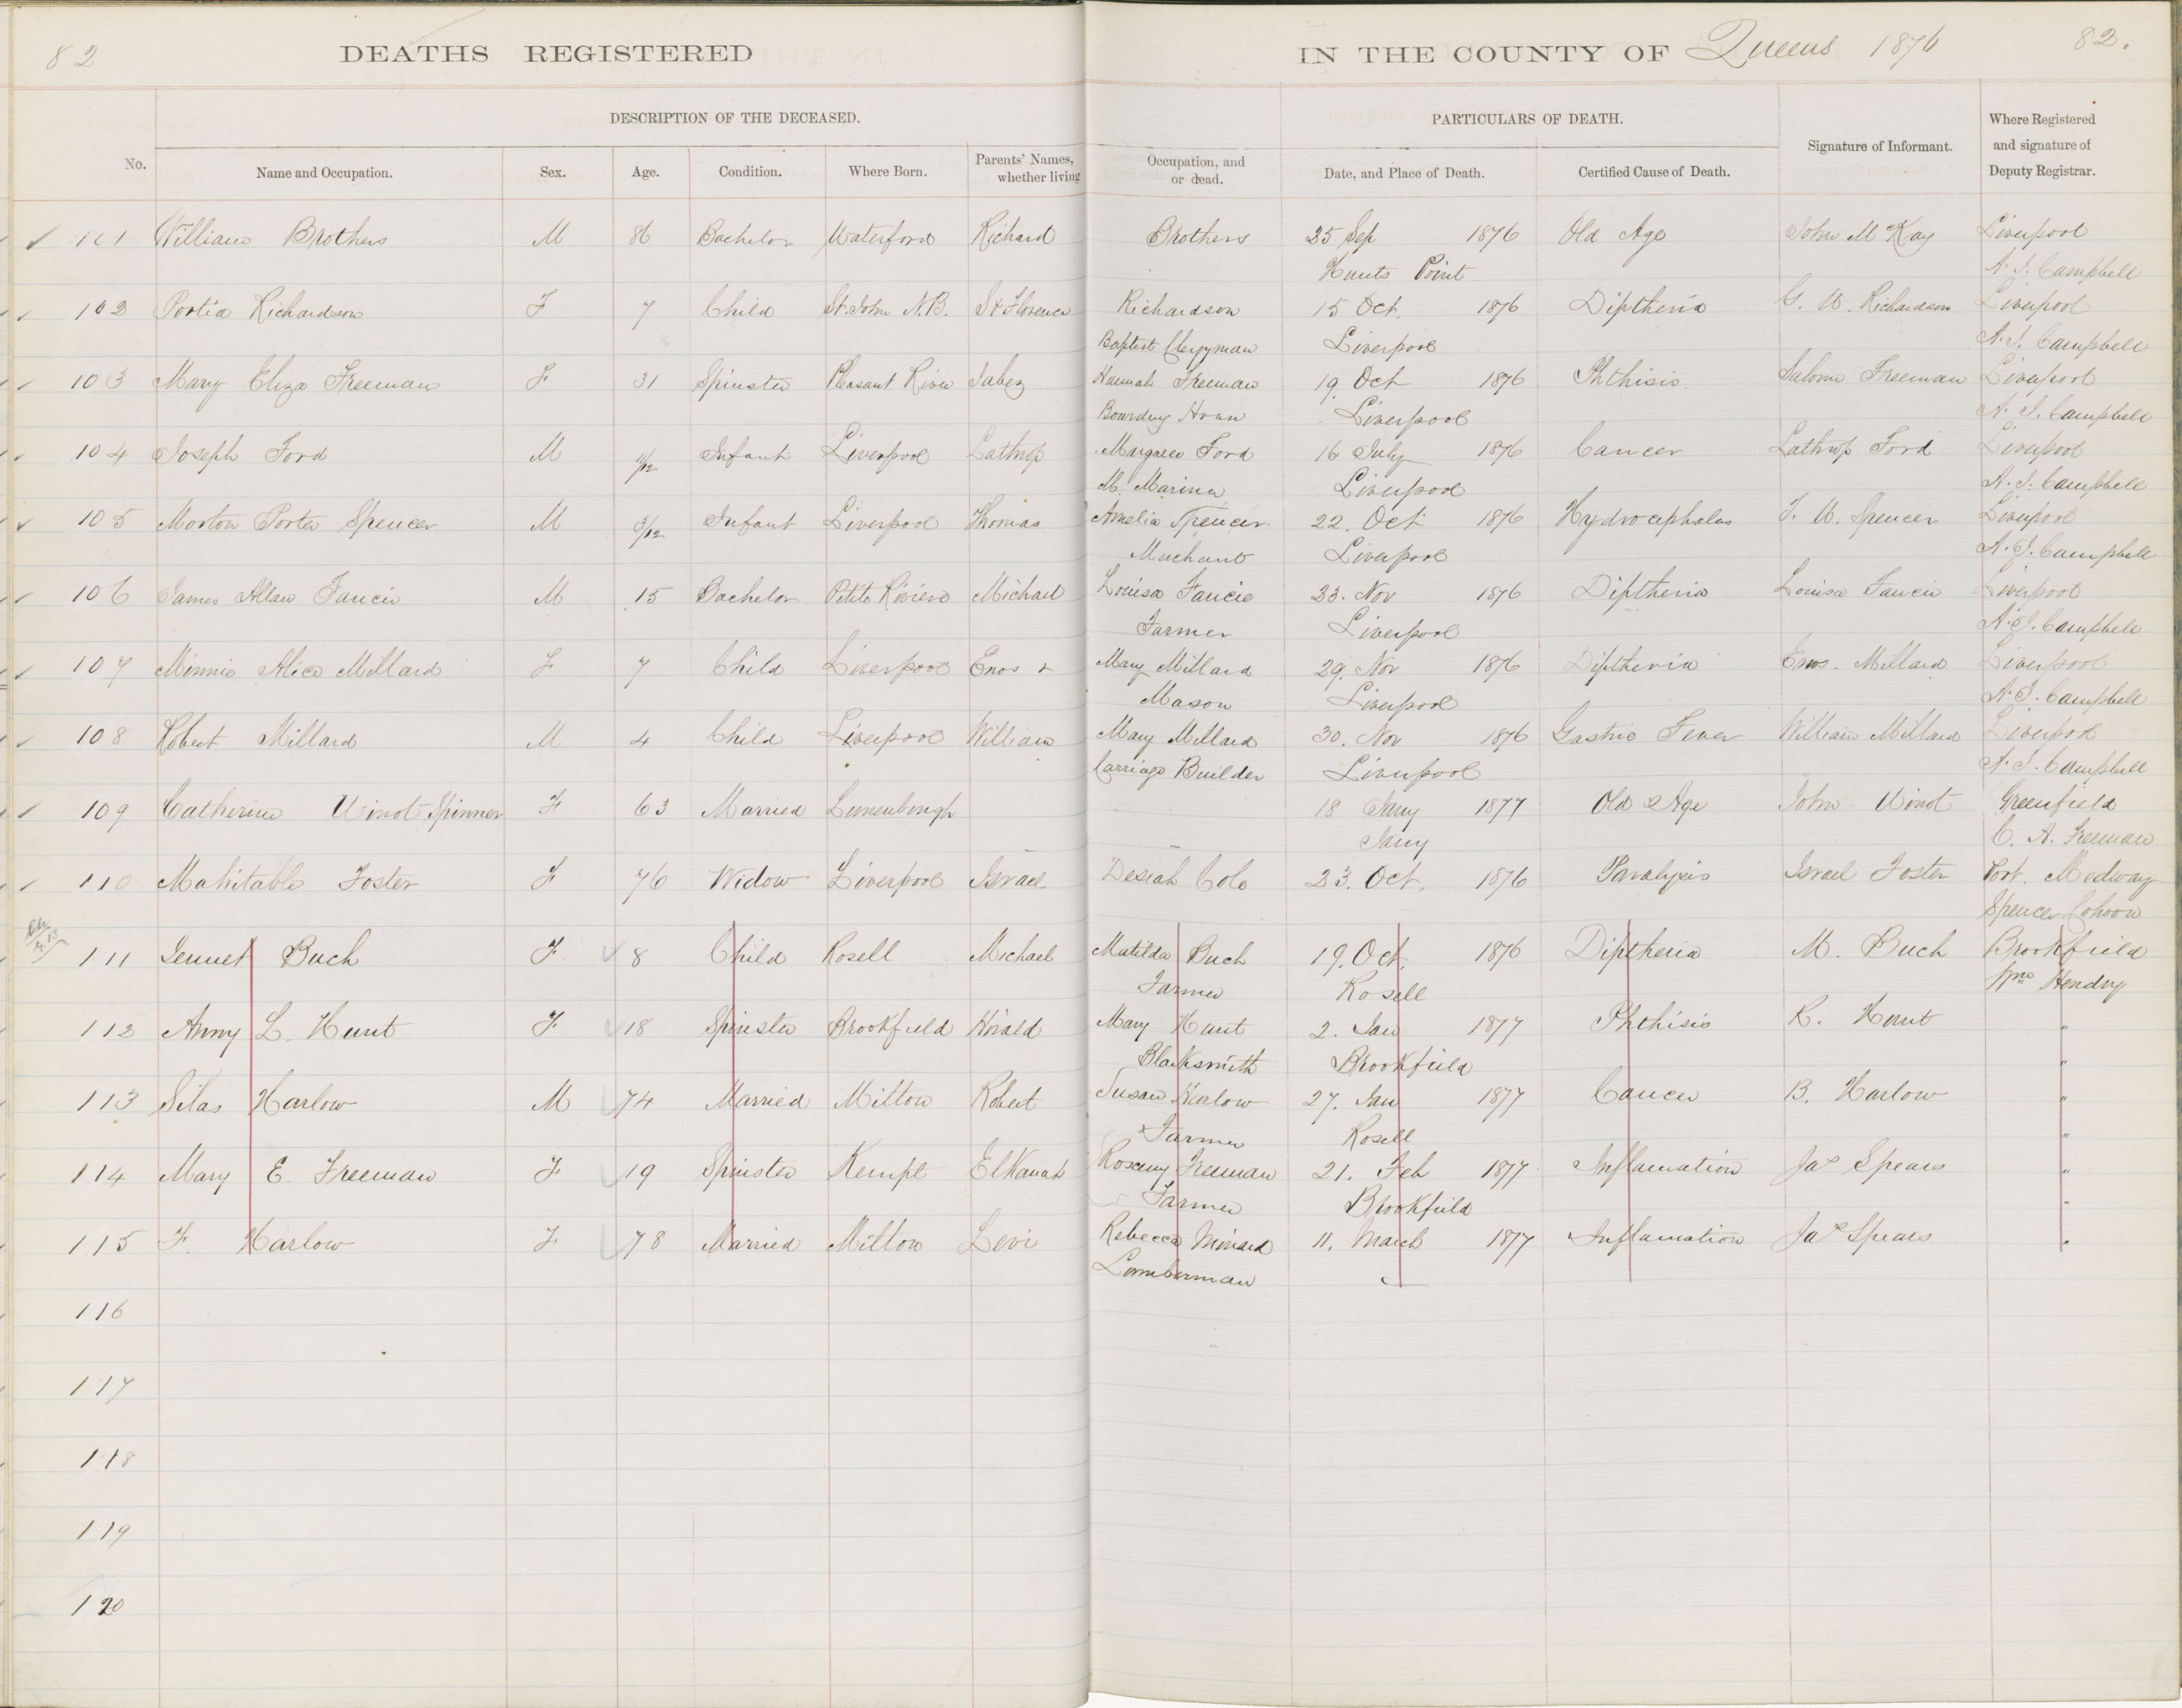 82
DEATHS REGISTERED IN THE COUNTY OF Queens 1876
82.
DESCRIPTION OF THE DECEASED. PARTICULARS OF DEATH.
No. Name and Occupation. Sex. Age. Condition. Where Born. Parents' Names, Occupation, and whether living or dead. Date, and Place of Death. Certified Cause of Death. Signature of Informant. Where Registered and signature of Deputy Registrar.
101 William Brothers M 86 Bachelor Waterford Richard Brothers 25 Sep 1876 Old Age John McKay Liverpool
Hunts Point A. J. Campbell
102 Portia Richardson F 7 Child St. John N.B. & Florence Richardson 15 Oct. 1876 Diptheria G. W. Richardson Liverpool
Baptist Clergyman Liverpool A. J. Campbell
103 Mary Eliza Freeman F 31 Spinster Pleasant River Jabez Hannah Freeman 19. Oct 1876 Phthisis Salome Freeman Liverpool
Boarding House Liverpool A. J. Campbell
104 Joseph Ford M 11/12 Infant Liverpool Lathrop Margaret Ford 16 July 1876 Cancer Lathrop Ford Liverpool
M. Mariner Liverpool A. J. Campbell
105 Morton Porter Spencer M 3/12 Infant Liverpool Thomas Amelia Spencer 22. Oct 1876 Hydrocephalus T. W. Spencer Liverpool
Merchant Liverpool A. J. Campbell
106 James Allan Fancie M 15 Bachelor Petite Riviere Michael Louisa Fancie 23. Nov 1876 Diptheria Louisa Fancie Liverpool
Farmer Liverpool A. J. Campbell
107 Minnie Alice Millard F 7 Child Liverpool Enos & Mary Millard 29. Nov 1876 Diptheria Enos. Millard Liverpool
Mason Liverpool A. J. Campbell
108 Robert Millard M 4 Child Liverpool William Mary Millard 30. Nov 1876 Gastric Fever William Millard Liverpool
Carriage Builder Liverpool A. J. Campbell
109 Catherine Winot Spinner F 63 Married Lunenburgh 18 Jany 1877 Old Age John Winot Greenfield
Jany C. A. Freeman
110 Mahitable Foster F 76 Widow Liverpool Israel Desiah Cole 23. Oct. 1876 Paralysis Israel Foster Port. Medway
Spencer Cohoon
111 Jennet Buch F. 8 Child Rosell Michael Matilda Buch 19. Oct. 1876 Diptheria M. Buch Brookfield
Farmer Rosell Wm Hendry
112 Anny L. Hunt F 18 Spinster Brookfield Mary Hunt 2. Jan 1877 Phthisis R. Hunt "
Blacksmith Brookfield "
113 Silas Harlow M 74 Married Milton Robert Susan Harlow 27. Jan 1877 Cancer B. Harlow "
Farmer Rosell "
114 Mary E. Freeman F 19 Spinster Kempt Elkanah Roseany Freeman 21. Feb 1877 Inflamation Jas Spears "
Farmer Brookfield "
115 F. Harlow F 78 Married Milton Levi Rebecca Minard 11. March 1877 Inflamation Jas Spears "
Lumberman
116
117
118
119
120